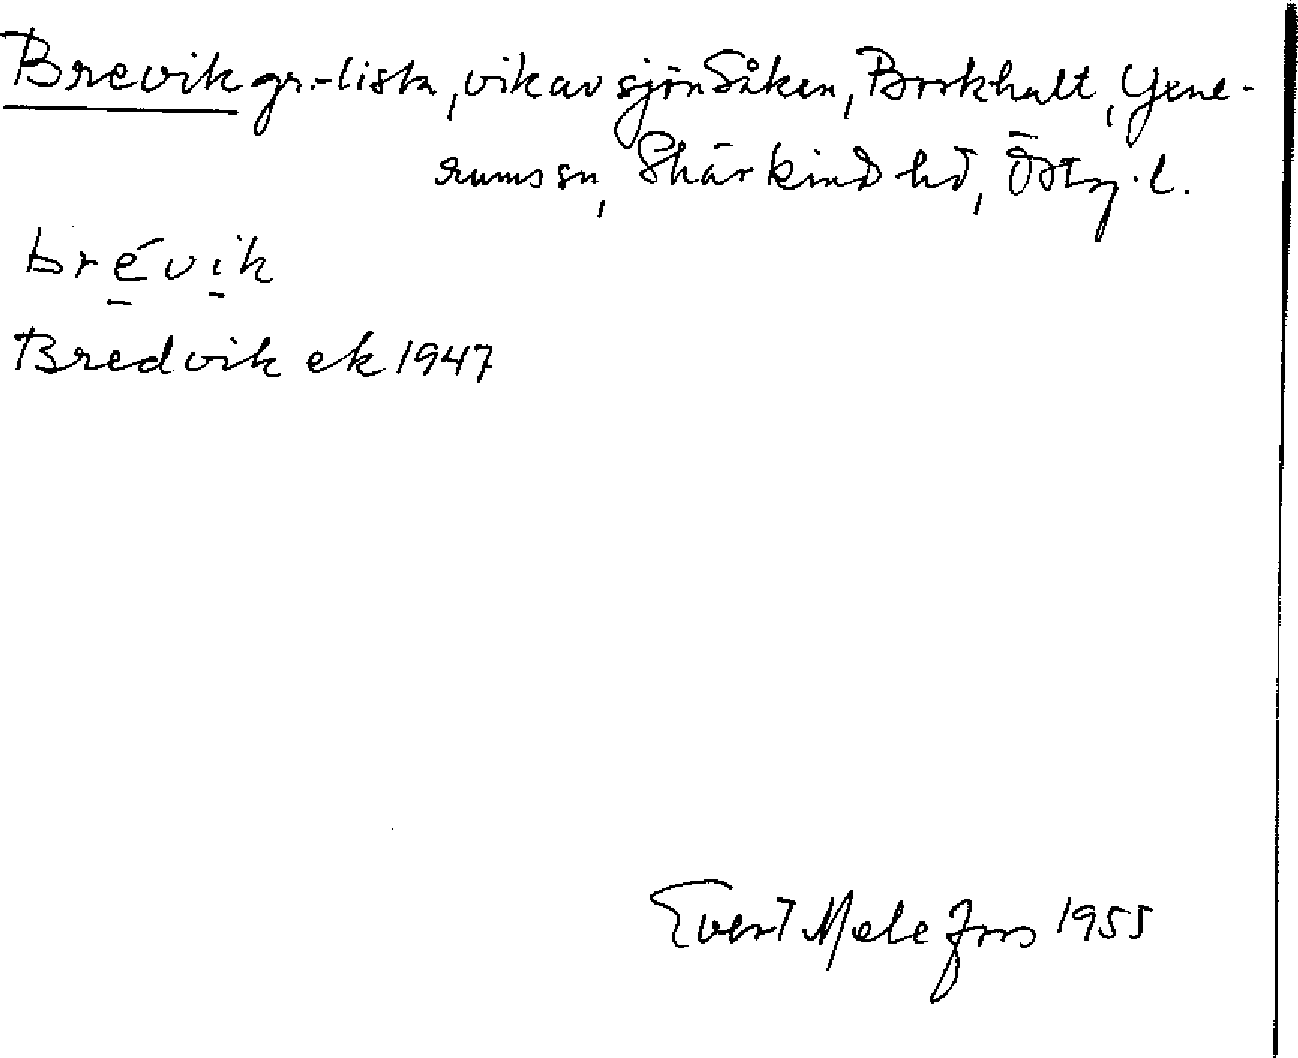 Brevik gr.-lista, vik av sjön Såken, Borkhult, Yxne-
rums sn, Skärkind hd, Östg. l.
brévik
Bredvik ek 1947
Evert Melefors 1955